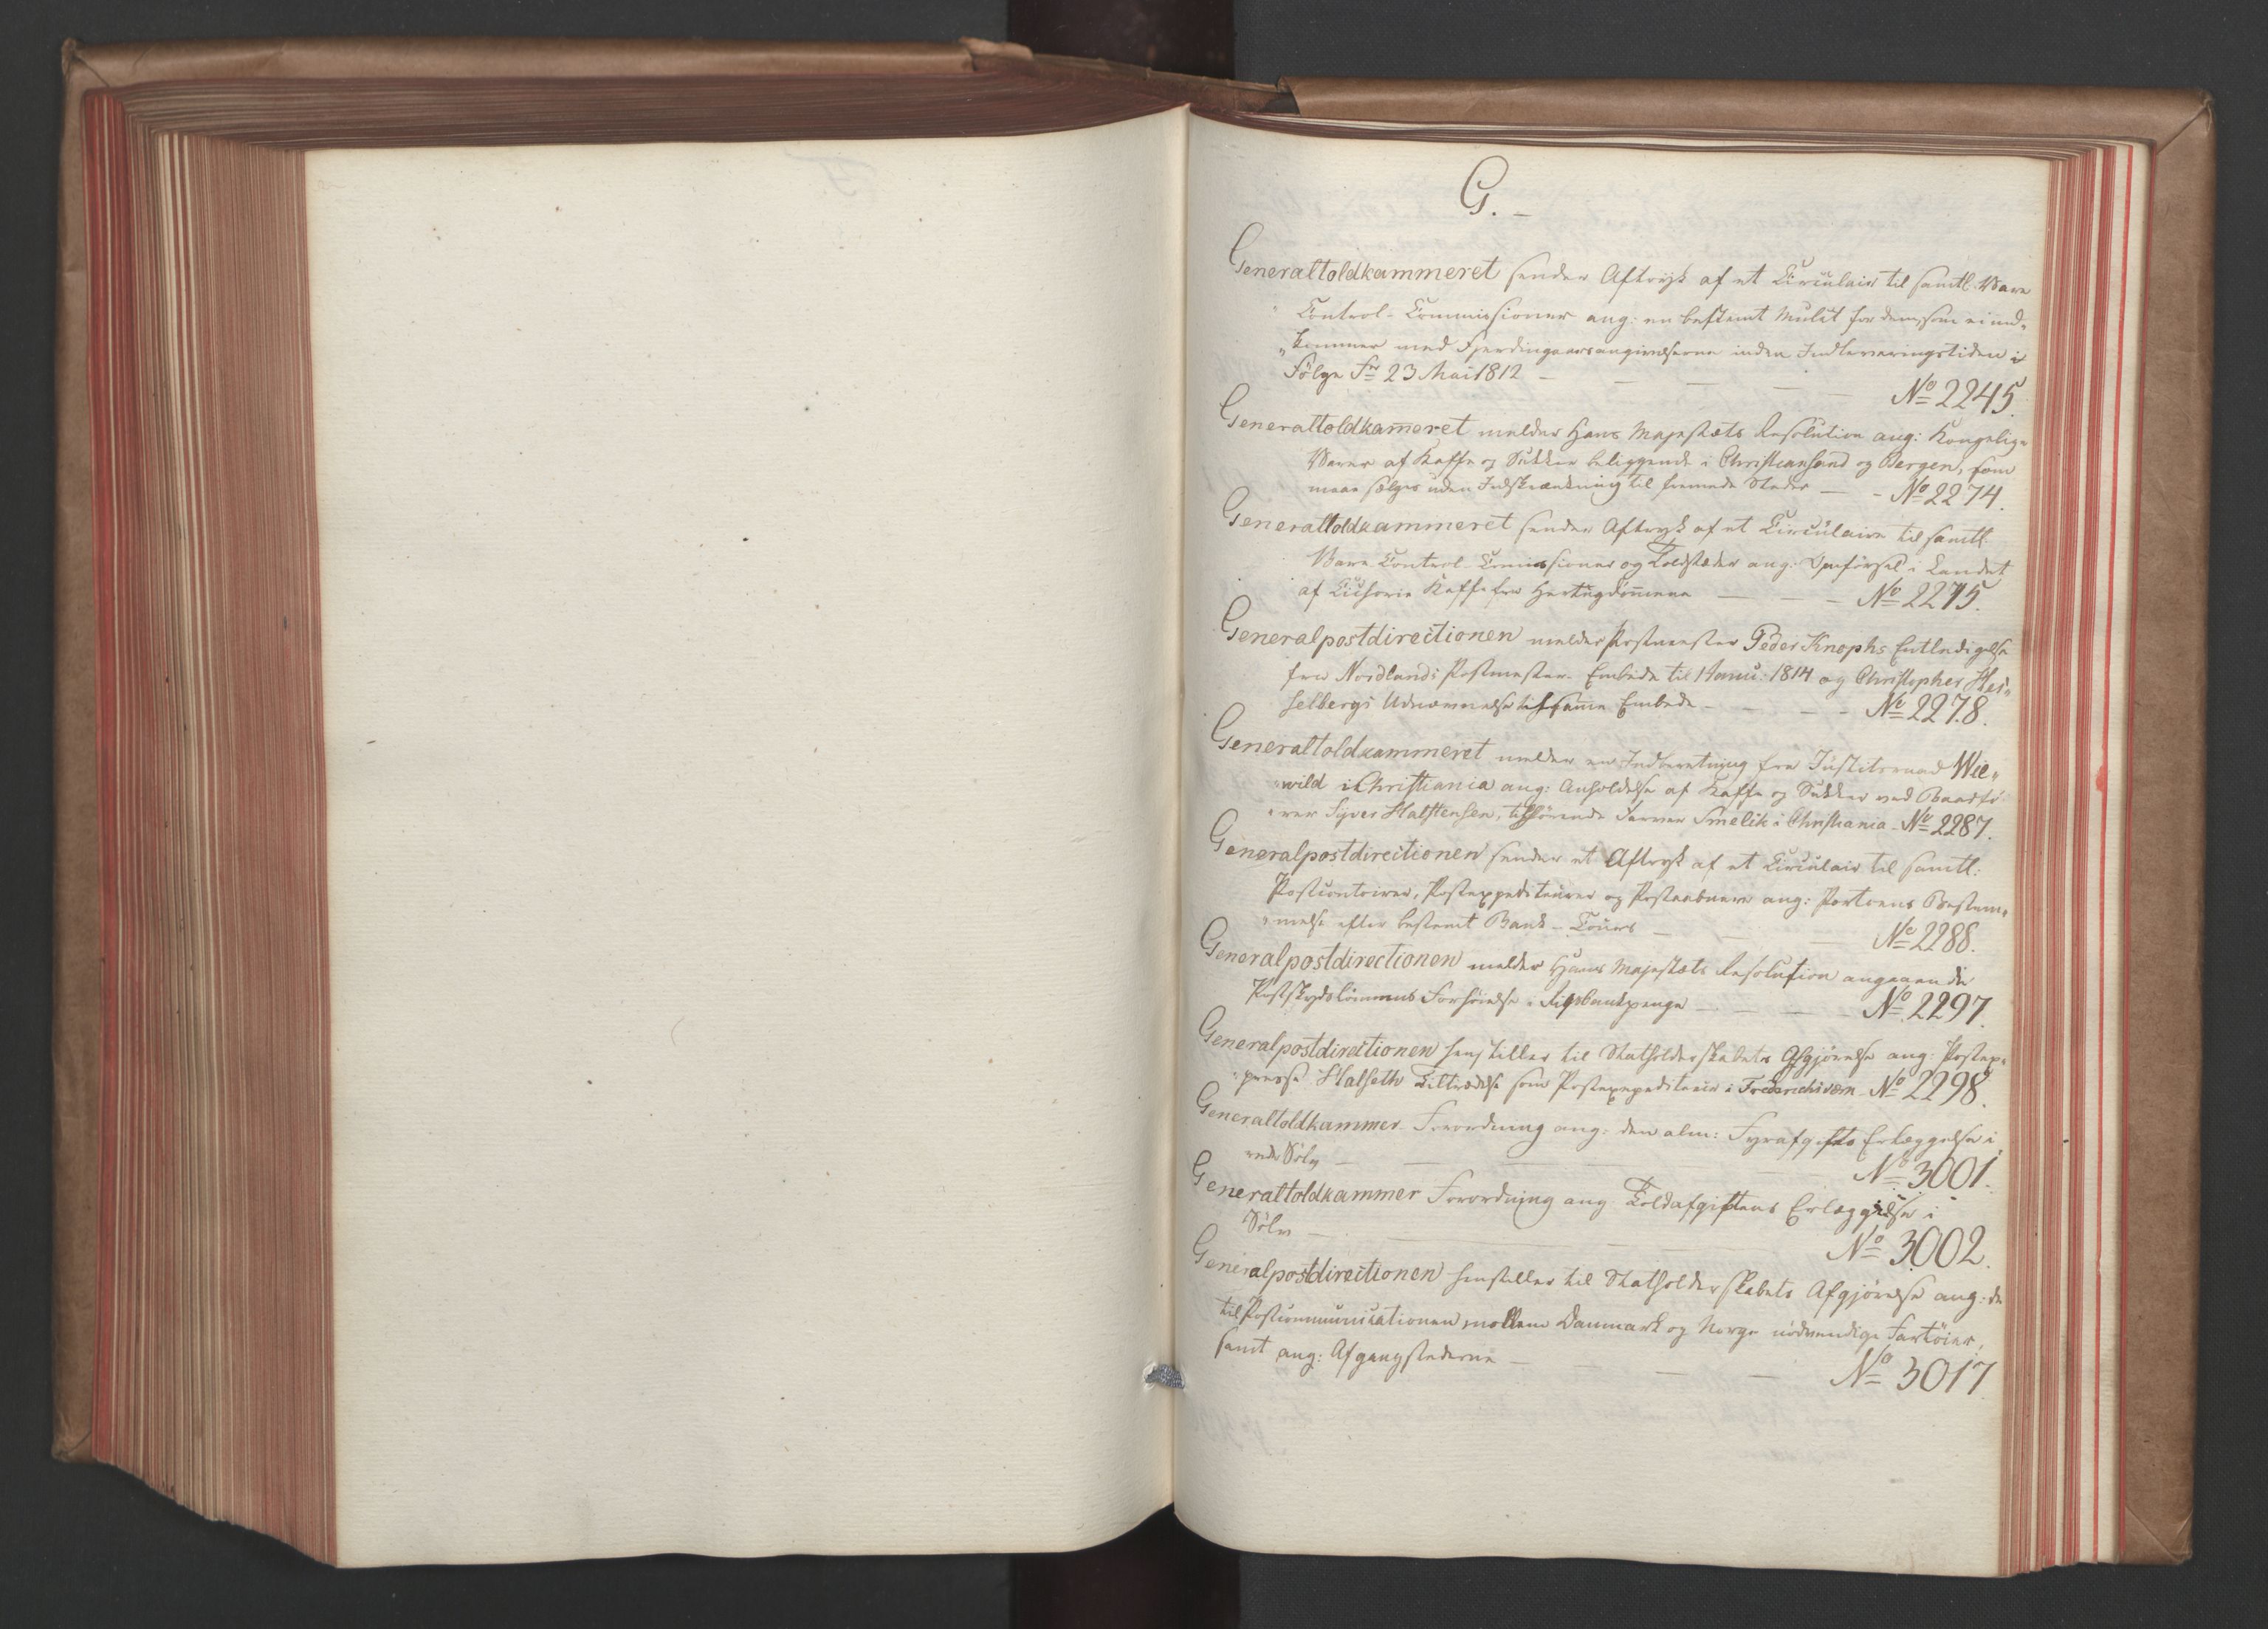 G.
Generaltoldkammeret sender Aftryk af et Circulair til samtl. Vare
Control-Commissioner ang: en bestemt Mulct for dem, som ei ind-
"kommer med Fjerdingaarsangivelserne inden Indleveringstiden i
Følge Fr 23 Mai 1812 — — — — — No 2245.
Generaltoldkam̅eret melder Hans Majestæts Resolution ang: Kongelige
Varer af Kaffe og Sukker beliggende i Christiansand og Bergen, som
maae sælges uden Indskrænkning til fremmede Steder — - No 2274.
Generaltoldkammeret sender Aftryk af et Circulaire til samtl.
Vare Control-Commissioner og Toldstæder ang. Indførsel i Landet
af Cichorie Kaffe fra Hertugdøm̅ene — — - No 2275.
Generalpostdirectionen melder Postmester Peder Knophs Entledigelse
fra Nordlands Postmester-Embede til 1 Janu: 1814 og Christopher Hes-
selbergs Udnævnelse til samme Embede - - - - No 2278.
Generaltoldkammeret melder en Indberetning fra Justitsraad Wie-
"wild i Christiania ang: Anholdelse af Kaffe og Sukker ved Baadfø-
"rer Syver Halstensen, tilhørende Farver Smelik i Christiania - No 2287.
Generalpostdirectionen sender et Aftryk af et Circulair til samtl:
Postcontoirer, Postexpediteurer og Postaabnere ang: Portoens Bestem-
"melse efter bestemt Bank-Cours — — — No 2288.
Generalpostdirectionen melder Hans Majestæts Resolution angaaende
Postskydslønnens Forhøielse i Rigsbankpenge — - — — - No 2297.
Generalpostdirectionen henstiller til Statholderskabets Afgjørelse ang: Postex-
"presse Halseth Tiltrædelse som Postexpediteur i Frederichsværn - No 2298.
Generaltoldkammer-Forordning ang: den alm: Fyrafgifts Erlæggelse i
rede Sølv — — — — — No 3001.
Generaltoldkammer Forordning ang Toldafgiftens Erlæggelse i
Sølv — — — No 3002.
Generalpostdirectionen henstiller til Statholderskabets Afgjørelse ang: de
til Postcommunicationen mellem Danmark og Norge nødvendige Fartøier,
samt ang: Afgangstederne — — — No 3017